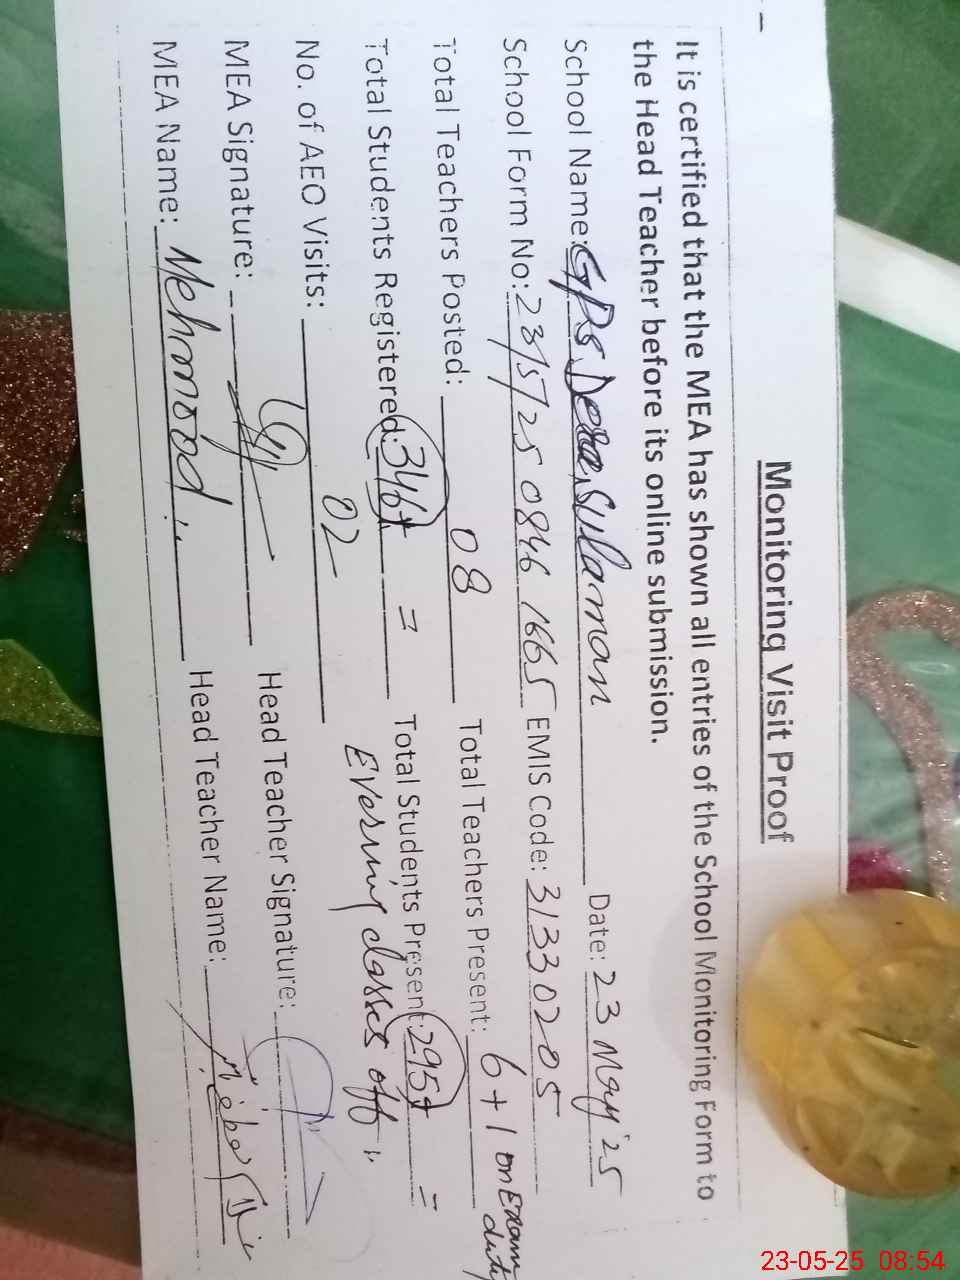 Monitoring Visit Proof
It is certified that the MEA has shown all entries of the School Monitoring Form to
the Head Teacher before its online submission.
School Name: GPS Dera Sulaman Date: 23 May '25
School Form No: 23/5/25 0846 1665 EMIS Code: 31330205
Total Teachers Posted: 08 Total Teachers Present: 6+1 on Exam duty
Total Students Registered: 346+ = Total Students Present: 295+ =
No. of AEO Visits: 02 Evening classes off
MEA Signature: Head Teacher Signature:
MEA Name: Mehmood Head Teacher Name:
23-05-25 08:54